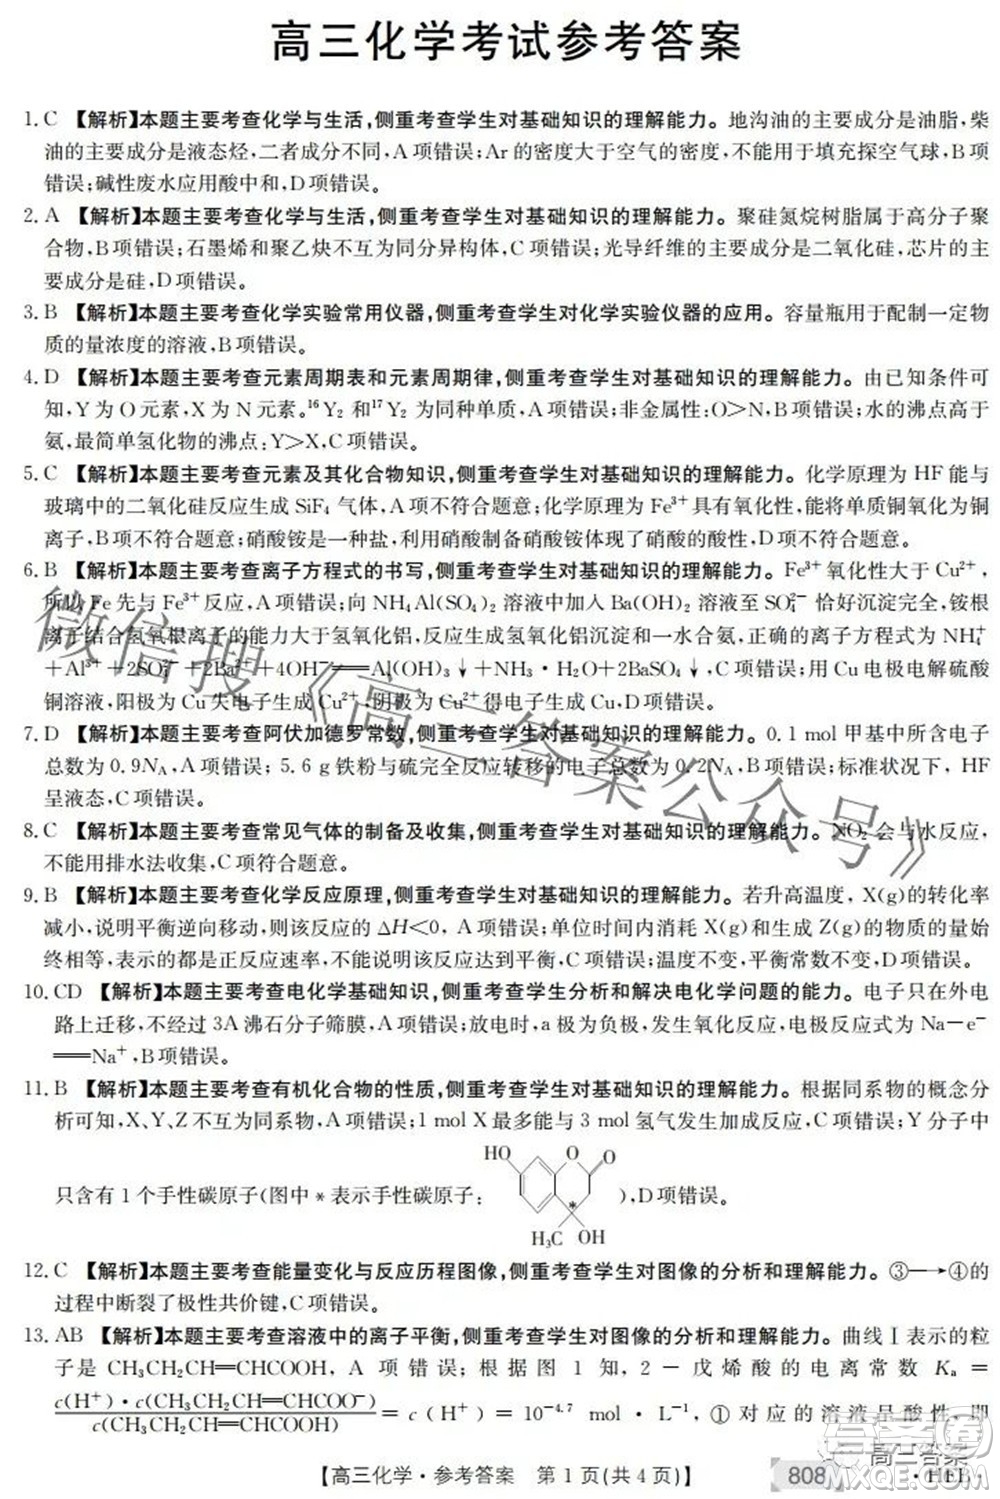 高三化学考试参考答案
1. C 【解析】本题主要考查化学与生活,侧重考查学生对基础知识的理解能力。地沟油的主要成分是油脂,柴
油的主要成分是液态烃,二者成分不同,A项错误;Ar的密度大于空气的密度,不能用于填充探空气球,B项
错误;碱性废水应用酸中和,D项错误。
2. A 【解析】本题主要考查化学与生活,侧重考查学生对基础知识的理解能力。聚硅氮烷树脂属于高分子聚
合物,B项错误;石墨烯和聚乙炔不互为同分异构体,C项错误;光导纤维的主要成分是二氧化硅,芯片的主
要成分是硅,D项错误。
3. B 【解析】本题主要考查化学实验常用仪器,侧重考查学生对化学实验仪器的应用。容量瓶用于配制一定物
质的量浓度的溶液,B项错误。
4. D 【解析】本题主要考查元素周期表和元素周期律,侧重考查学生对基础知识的理解能力。由已知条件可
知,Y为O元素,X为N元素。¹⁶Y₂和¹⁷Y₂为同种单质,A项错误;非金属性:O>N,B项错误;水的沸点高于
氨,最简单氢化物的沸点:Y>X,C项错误。
5. C 【解析】本题主要考查元素及其化合物知识,侧重考查学生对基础知识的理解能力。化学原理为HF能与
玻璃中的二氧化硅反应生成SiF₄气体,A项不符合题意;化学原理为Fe³⁺具有氧化性,能将单质铜氧化为铜
离子,B项不符合题意;硝酸铵是一种盐,利用硝酸制备硝酸铵体现了硝酸的酸性,D项不符合题意。
6. B 【解析】本题主要考查离子方程式的书写,侧重考查学生对基础知识的理解能力。Fe³⁺氧化性大于Cu²⁺,
所以Fe先与Fe³⁺反应,A项错误;向NH₄Al(SO₄)₂溶液中加入Ba(OH)₂溶液至SO₄²⁻恰好沉淀完全,铵根
离子结合氢氧根离子的能力大于氢氧化铝,生成氢氧化铝沉淀和一水合氨,正确的离子方程式为NH₄⁺
+Al³⁺+2SO₄²⁻+2Ba²⁺+4OH⁻══Al(OH)₃↓+NH₃·H₂O+2BaSO₄↓,C项错误;用Cu电极电解硫酸
铜溶液,阳极为Cu失电子生成Cu²⁺,阴极为Cu²⁺得电子生成Cu,D项错误。
7. D 【解析】本题主要考查阿伏加德罗常数,侧重考查学生对基础知识的理解能力。0.1 mol甲基中所含电子
总数为0.9Nᴀ,A项错误;5.6 g铁粉与硫完全反应转移的电子总数为0.2Nᴀ,B项错误;标准状况下,HF
呈液态,C项错误。
8. C 【解析】本题主要考查常见气体的制备及收集,侧重考查学生对基础知识的理解能力。NO₂会与水反应,
不能用排水法收集,C项符合题意。
9. B 【解析】本题主要考查化学反应原理,侧重考查学生对基础知识的理解能力。若升高温度,X(g)的转化率
减小,说明平衡逆向移动,则该反应的ΔH<0,A项错误;单位时间内消耗X(g)和生成Z(g)的物质的量始
终相等,表示的都是正反应速率,不能说明该反应达到平衡,C项错误;温度不变,平衡常数不变,D项错误。
10. CD 【解析】本题主要考查电化学基础知识,侧重考查学生分析和解决电化学问题的能力。电子只在外电
路上迁移,不经过3A沸石分子筛膜,A项错误;放电时,a极为负极,发生氧化反应,电极反应式为Na－e⁻
══Na⁺,B项错误。
11. B 【解析】本题主要考查有机化合物的性质,侧重考查学生对基础知识的理解能力。根据同系物的概念分
析可知,X、Y、Z不互为同系物,A项错误;1 mol X最多能与3 mol氢气发生加成反应,C项错误;Y分子中
只含有1个手性碳原子(图中*表示手性碳原子: HO O O * H₃C OH ),D项错误。
12. C 【解析】本题主要考查能量变化与反应历程图像,侧重考查学生对图像的分析和理解能力。③→④的
过程中断裂了极性共价键,C项错误。
13. AB 【解析】本题主要考查溶液中的离子平衡,侧重考查学生对图像的分析和理解能力。曲线Ⅰ表示的粒
子是CH₃CH₂CH═CHCOOH,A项错误;根据图1知,2－戊烯酸的电离常数Kₐ=
c(H⁺)·c(CH₃CH₂CH═CHCOO⁻)/c(CH₃CH₂CH═CHCOOH)=c(H⁺)=10⁻⁴·⁷ mol·L⁻¹,①对应的溶液呈酸性,即
【高三化学·参考答案 第1页(共4页)】
808
·HEB·
微信搜《高三答案公众号》
高三答案
MXQE.COM